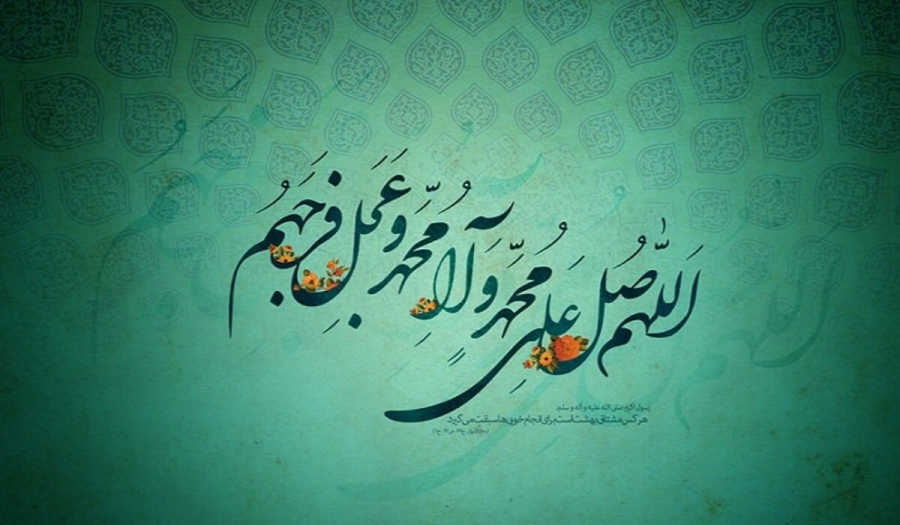 اللهم صل علی محمد و آل محمد و عجل فرجهم
رسول اکرم صلی الله علیه و آله و سلم:
هر کس مشتاق بهشت است برای انجام خوبی‌ها سبقت می‌گیرد